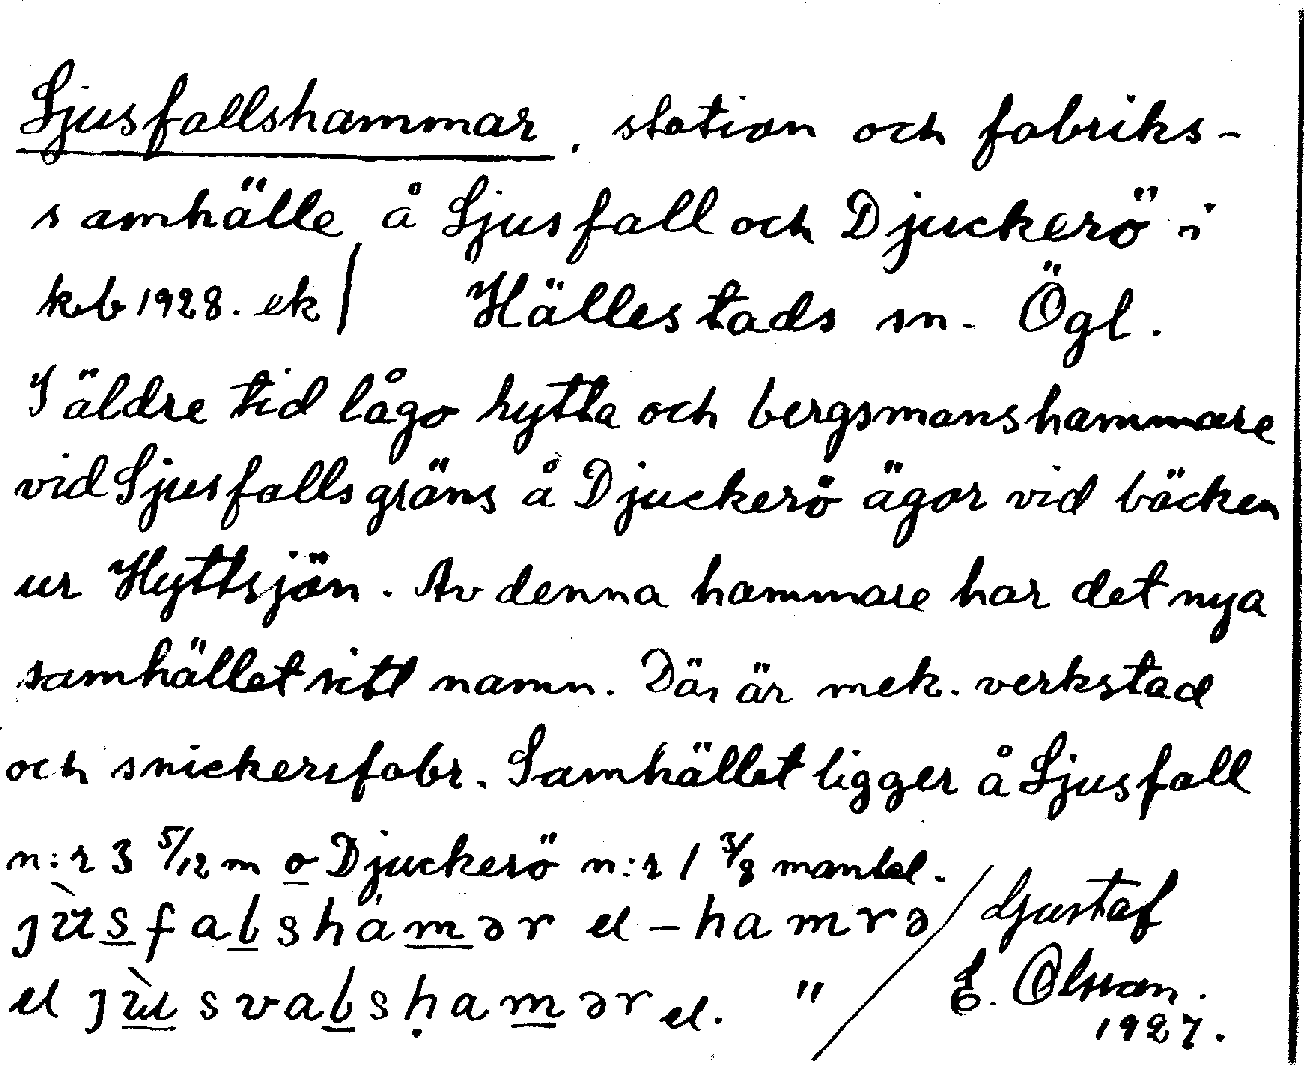 Ljusfallshammar. station och fabriks-
samhälle å Ljusfall och Djuckerö i
kb 1928. ek / Hällestads sn. Ögl.
I äldre tid lågo hytta och bergsmanshammare
vid Ljusfallsgräns å Djuckerö ägor vid bäcken
ur Hyttsjön. Av denna hammare har det nya
samhället sitt namn. Där är mek. verkstad
och snickerifabr. Samhället ligger å Ljusfall
n:r 3 5/12 m o Djuckerö n:r 1 3/8 mantal.
el -hamrə / Gustaf
el el. " E. Olsson.
1927.